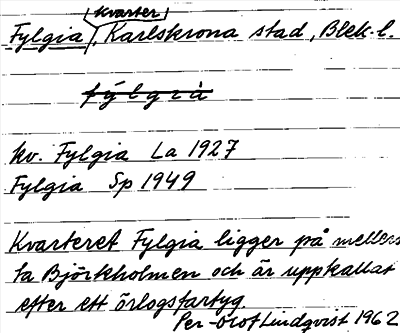 kvarter
Fylgia, Karlskrona stad, Blek. l.
fýlgıà
kv. Fylgia La 1927
Fylgia Sp 1949
Kvarteret Fylgia ligger på mellers
ta Björkholmen och är uppkallat
efter ett örlogsfartyg
Per-Olof Lindqvist 1962